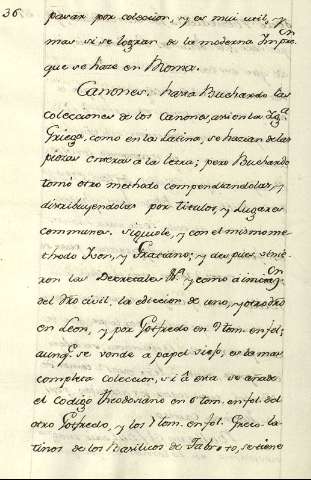 36
pasar por coleccion, y es mui util, y
mas si se logran de la moderna Impre.on
que se haze en Roma.
Canones. hasta Buchardo las
colecciones de los Canones, asi en la Ig.a
Griega, como en la Latina, se hazian de las
piezas enteras à la letra; pero Buchardo
tomó otro methodo compendiandolas, y
distribuyendolas por titulos, y Lugares
communes. siguiole, y con el mismo me=
thodo Ivon, y Graciano; y despues, se hicie=
ron las Decretales &.a y como à imitaz.on
del dro civil, la edicion de uno, y otro dro
en Leon, y por Gotfredo en tom. en fol;
aunq.e se vende à papel viejo, es la mas
completa coleccion, si à esta se añade
el codigo theodosiano en 6 tom. en fol. del
otro Gotfredo, y los 7 tom. en fol. Greco-la=
tinos de los Basilicos de Fabroto, se tiene